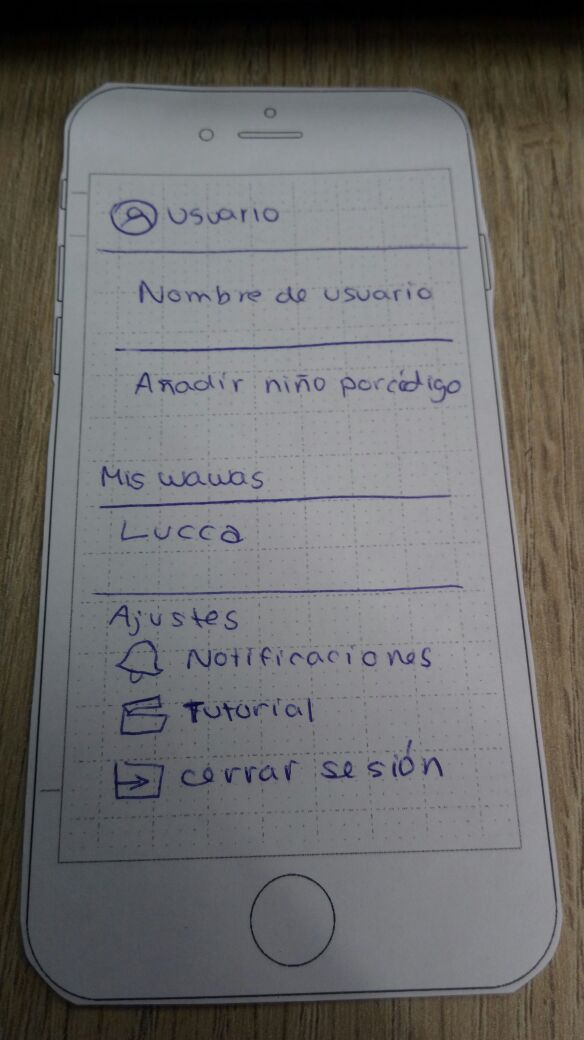 Usuario
Nombre de usuario
Añadir niño por código
Mis wawas
Lucca
Ajustes
Notificaciones
Tutorial
cerrar sesión